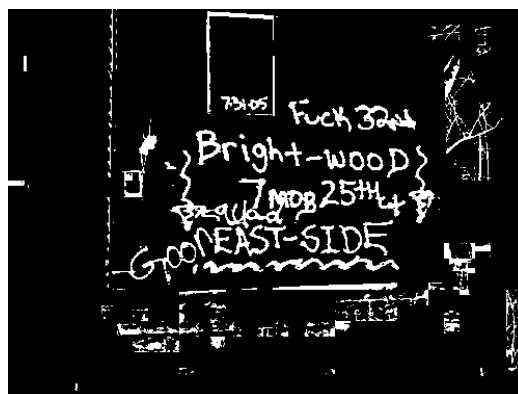 73105
Fuck 32nd
Bright-wooD
MOB 25TH ct
Goon EAST-SIDE